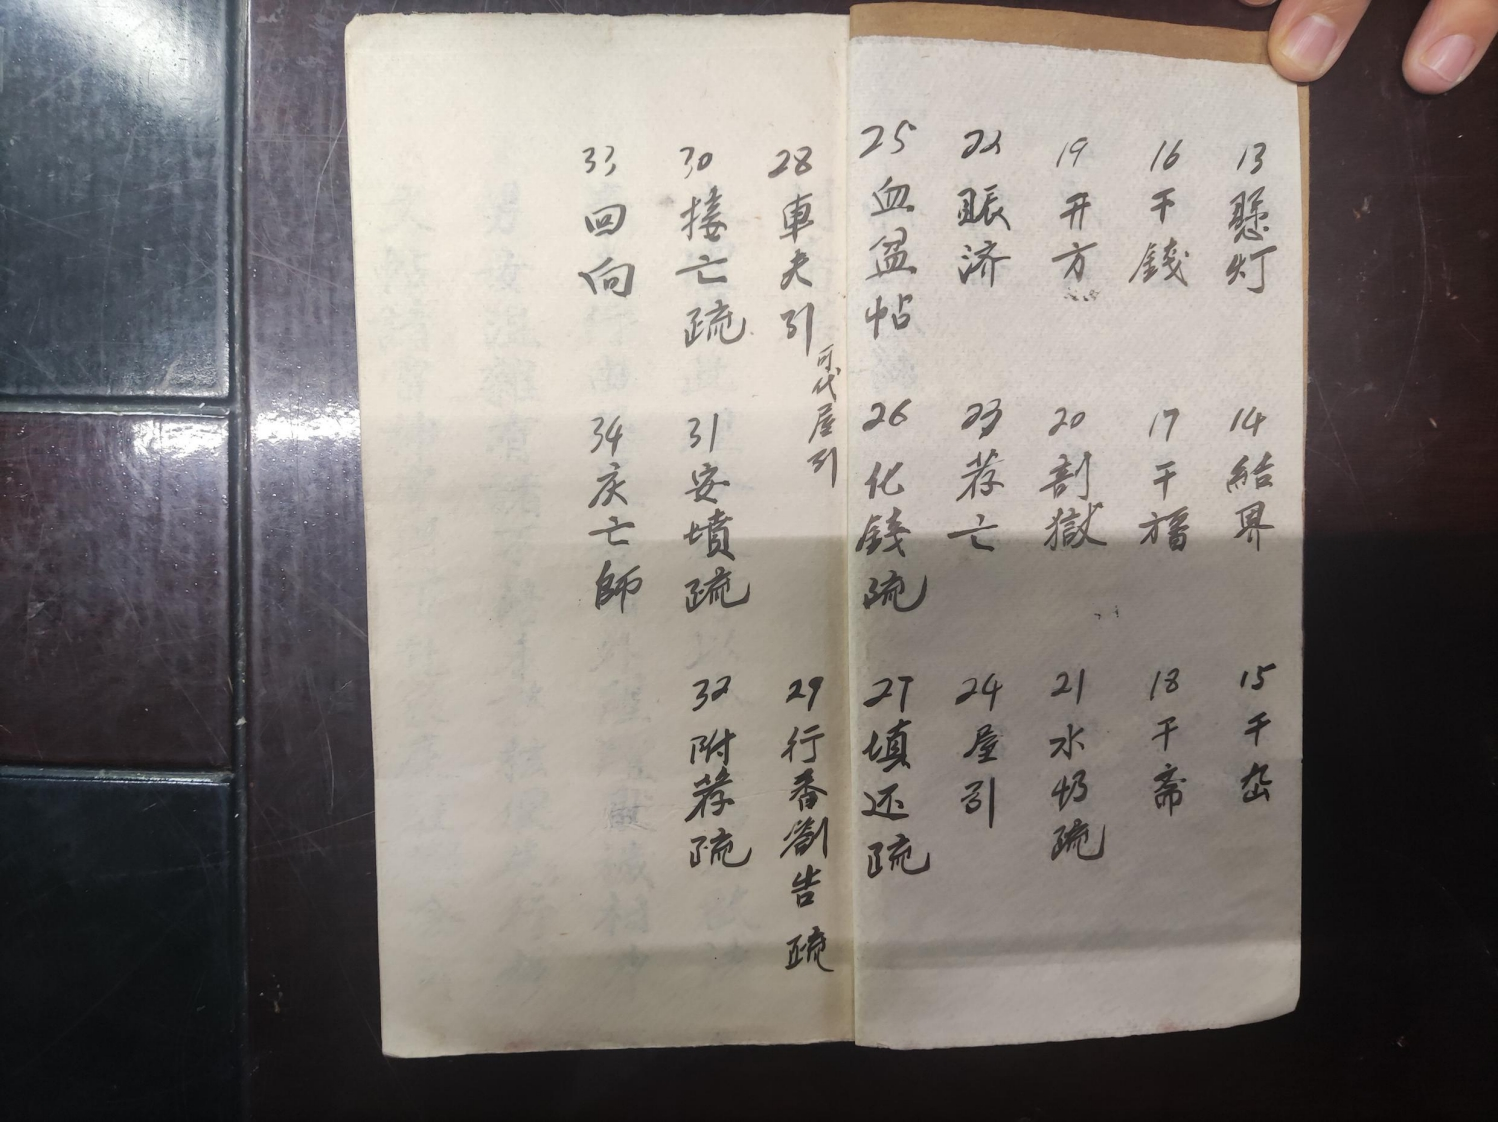 13 懸灯
14 結界
15 干
16 干錢
17 干旛
18 干斋
19 开方
20 割獄
21 水
疏
22 賑济
23 荐亡
24 屋引
25 血盆帖
26 化錢疏
27 填还疏
28 車夫引
可代屋引
29 行香劄告疏
30 接亡疏
31 安墳疏
32 附荐疏
33 回向
34 庆亡師